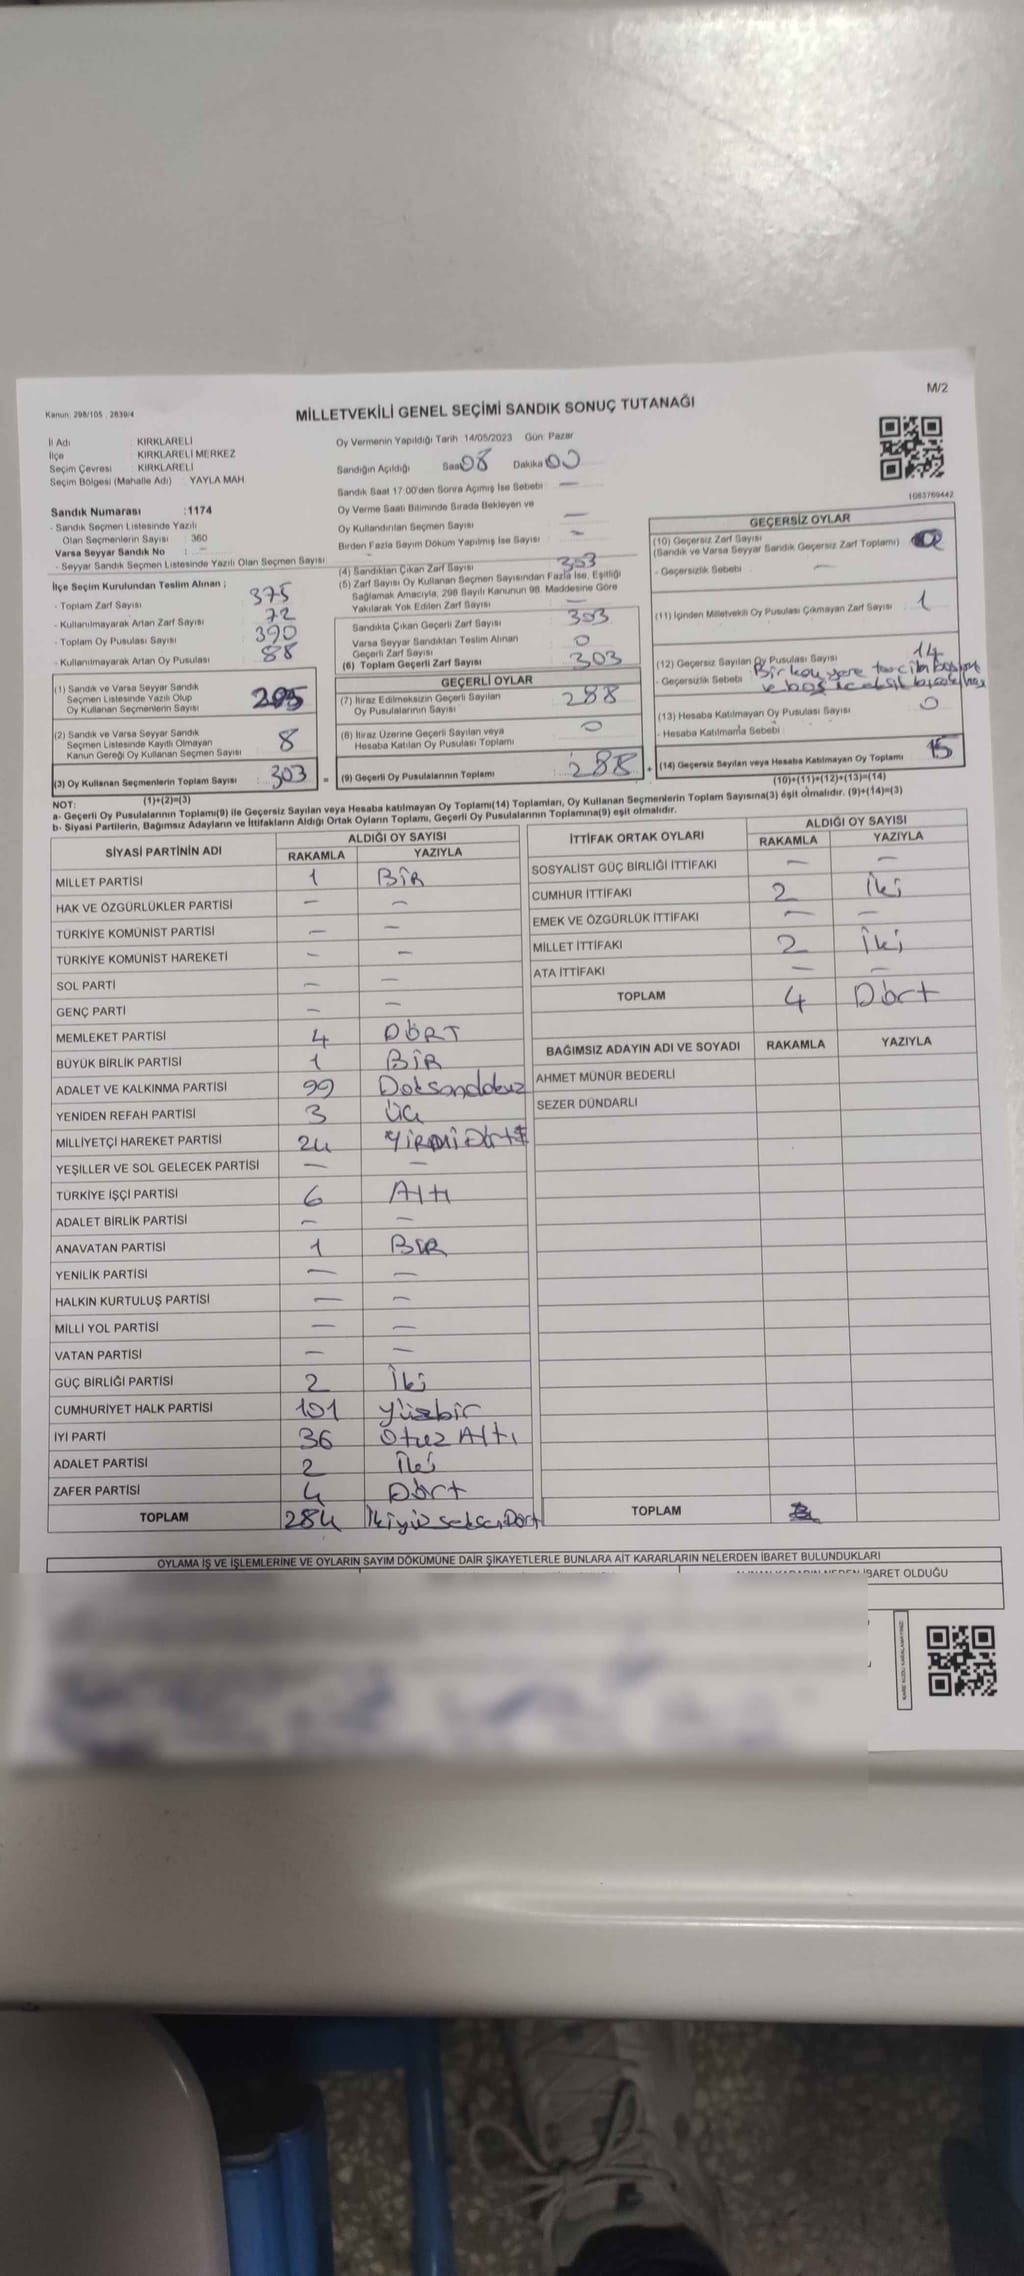 M/2
Kanun: 298/105 , 2839/4
MİLLETVEKİLİ GENEL SEÇİMİ SANDIK SONUÇ TUTANAĞI
İl Adı : KIRKLARELİ
İlçe : KIRKLARELİ MERKEZ
Seçim Çevresi : KIRKLARELİ
Seçim Bölgesi (Mahalle Adı) : YAYLA MAH
Sandık Numarası :1174
- Sandık Seçmen Listesinde Yazılı
Olan Seçmenlerin Sayısı : 360
Varsa Seyyar Sandık No : –
- Seyyar Sandık Seçmen Listesinde Yazılı Olan Seçmen Sayısı
İlçe Seçim Kurulundan Teslim Alınan ;
- Toplam Zarf Sayısı : 375
- Kullanılmayarak Artan Zarf Sayısı : 72
- Toplam Oy Pusulası Sayısı : 390
- Kullanılmayarak Artan Oy Pusulası : 88
(1) Sandık ve Varsa Seyyar Sandık
Seçmen Listesinde Yazılı Olup
Oy Kullanan Seçmenlerin Sayısı 295
(2) Sandık ve Varsa Seyyar Sandık
Seçmen Listesinde Kayıtlı Olmayan
Kanun Gereği Oy Kullanan Seçmen Sayısı 8
(3) Oy Kullanan Seçmenlerin Toplam Sayısı : 303 =
(1)+(2)=(3)
Oy Vermenin Yapıldığı Tarih :14/05/2023 Gün: Pazar
Sandığın Açıldığı Saat 08 Dakika 00
Sandık Saat 17:00'den Sonra Açımış İse Sebebi : –
Oy Verme Saati Bitiminde Sırada Bekleyen ve
Oy Kullandırılan Seçmen Sayısı –
Birden Fazla Sayım Döküm Yapılmış İse Sayısı –
(4) Sandıktan Çıkan Zarf Sayısı 303
(5) Zarf Sayısı Oy Kullanan Seçmen Sayısından Fazla İse, Eşitliği
Sağlamak Amacıyla, 298 Sayılı Kanunun 98. Maddesine Göre
Yakılarak Yok Edilen Zarf Sayısı –
Sandıkta Çıkan Geçerli Zarf Sayısı 303
Varsa Seyyar Sandıktan Teslim Alınan
Geçerli Zarf Sayısı 0
(6) Toplam Geçerli Zarf Sayısı 303
GEÇERLİ OYLAR
(7) İtiraz Edilmeksizin Geçerli Sayılan
Oy Pusulalarının Sayısı 288
(8) İtiraz Üzerine Geçerli Sayılan veya
Hesaba Katılan Oy Pusulası Toplamı 0
(9) Geçerli Oy Pusulalarının Toplamı 288 +
1083769442
GEÇERSİZ OYLAR
(10) Geçersiz Zarf Sayısı
(Sandık ve Varsa Seyyar Sandık Geçersiz Zarf Toplamı)
- Geçersizlik Sebebi : –
(11) İçinden Milletvekili Oy Pusulası Çıkmayan Zarf Sayısı : 1
(12) Geçersiz Sayılan Oy Pusulası Sayısı : 14
- Geçersizlik Sebebi : Birkaç yere tercih
ve boş
(13) Hesaba Katılmayan Oy Pusulası Sayısı : 0
- Hesaba Katılmama Sebebi :
(14) Geçersiz Sayılan veya Hesaba Katılmayan Oy Toplamı 15
(10)+(11)+(12)+(13)=(14)
NOT:
a- Geçerli Oy Pusulalarının Toplamı(9) ile Geçersiz Sayılan veya Hesaba katılmayan Oy Toplamı(14) Toplamları, Oy Kullanan Seçmenlerin Toplam Sayısına(3) eşit olmalıdır. (9)+(14)=(3)
b- Siyasi Partilerin, Bağımsız Adayların ve İttifakların Aldığı Ortak Oyların Toplamı, Geçerli Oy Pusulalarının Toplamına(9) eşit olmalıdır.
SİYASİ PARTİNİN ADI ALDIĞI OY SAYISI
RAKAMLA YAZIYLA
MİLLET PARTİSİ 1 BİR
HAK VE ÖZGÜRLÜKLER PARTİSİ – –
TÜRKİYE KOMÜNİST PARTİSİ – –
TÜRKİYE KOMÜNİST HAREKETİ – –
SOL PARTİ – –
GENÇ PARTİ – –
MEMLEKET PARTİSİ 4 DÖRT
BÜYÜK BİRLİK PARTİSİ 1 BİR
ADALET VE KALKINMA PARTİSİ 99 Doksandokuz
YENİDEN REFAH PARTİSİ 3 Üç
MİLLİYETÇİ HAREKET PARTİSİ 24 YİRMİDört
YEŞİLLER VE SOL GELECEK PARTİSİ – –
TÜRKİYE İŞÇİ PARTİSİ 6 Altı
ADALET BİRLİK PARTİSİ – –
ANAVATAN PARTİSİ 1 BİR
YENİLİK PARTİSİ – –
HALKIN KURTULUŞ PARTİSİ – –
MİLLİ YOL PARTİSİ – –
VATAN PARTİSİ – –
GÜÇ BİRLİĞİ PARTİSİ 2 İki
CUMHURİYET HALK PARTİSİ 101 Yüzbir
İYİ PARTİ 36 Otuz Altı
ADALET PARTİSİ 2 İki
ZAFER PARTİSİ 4 Dört
TOPLAM 284 İkiyüzseksenDört
İTTİFAK ORTAK OYLARI ALDIĞI OY SAYISI
RAKAMLA YAZIYLA
SOSYALİST GÜÇ BİRLİĞİ İTTİFAKI – –
CUMHUR İTTİFAKI 2 İki
EMEK VE ÖZGÜRLÜK İTTİFAKI – –
MİLLET İTTİFAKI 2 İki
ATA İTTİFAKI – –
TOPLAM 4 Dört
BAĞIMSIZ ADAYIN ADI VE SOYADI RAKAMLA YAZIYLA
AHMET MÜNÜR BEDERLİ
SEZER DÜNDARLI
TOPLAM
OYLAMA İŞ VE İŞLEMLERİNE VE OYLARIN SAYIM DÖKÜMÜNE DAİR ŞİKAYETLERLE BUNLARA AİT KARARLARIN NELERDEN İBARET BULUNDUKLARI
İBARET OLDUĞU